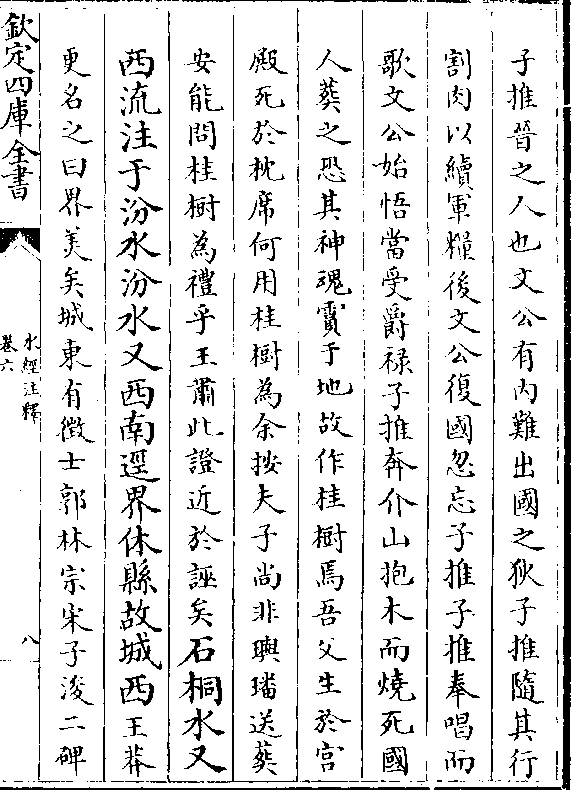 子推晉之人也文公有內難出國之狄子推隨其行
割肉以續軍糧後文公復國忽忘子推子推奉唱而
歌文公始悟當受爵祿子推奔介山抱木而燒死國
人葬之恐其神魂霣于地故作桂樹焉吾父生於宫
殿死於枕席何用桂樹為余按夫子尚非璵璠送葬
安能問桂樹為禮乎王肅此證近於誣矣石桐水又
西流注于汾水汾水又西南逕界休縣故城西王莽
更名之曰界美矣城東有徴士郭林宗宋子浚二碑
欽定四庫全書
水經注釋
卷六
八